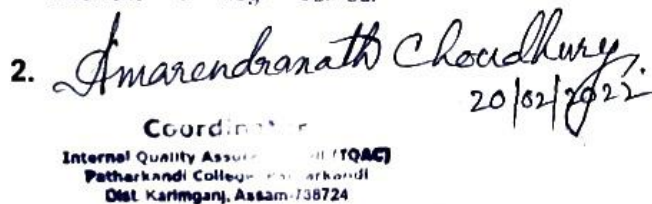 2. Amarendranath Choudhury.
20/02/2022.
Coordinator
Internal Quality Assurance Cell (IQAC)
Patharkandi College, Patharkandi
Dist. Karimganj, Assam-788724